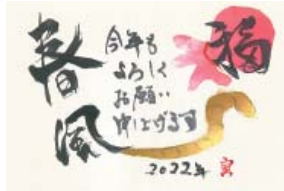 春風
福
今年も
よろしく
お願い
申上げます
2022年 寅